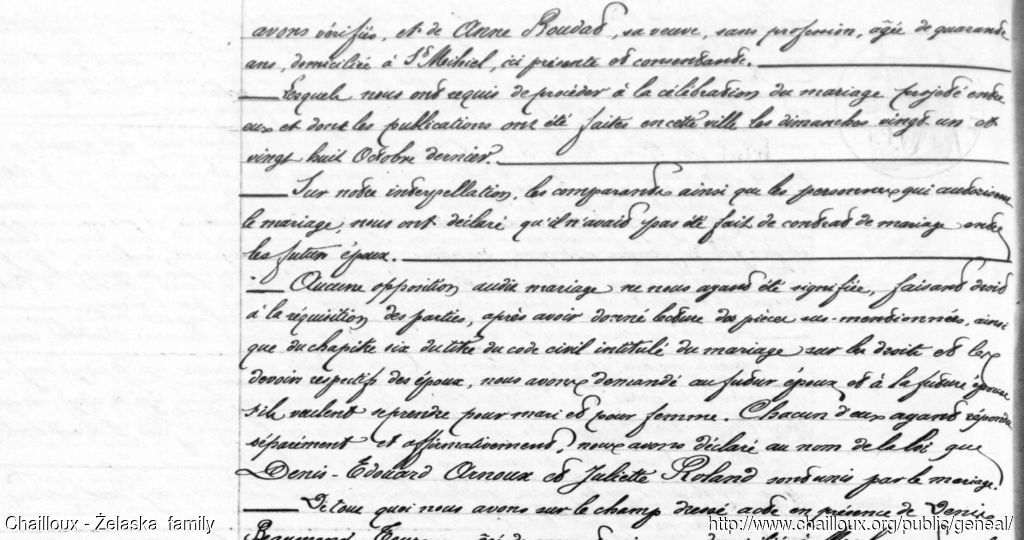 avons vérifiés, et de Anne Roudad, sa veuve, sans profession, âgée de quarante
ans, domiciliée à St Mihiel, ici présente et consentante.
Lesquels nous ont requis de procéder à la célébration du mariage projeté entre
eux et dont les publications ont été faites en cette ville les dimanches vingt un et
vingt huit Octobre dernier.
Sur notre interpellation, les comparants ainsi que les personnes qui autorisent
le mariage, nous ont déclaré qu'il n'avait pas été fait de contrat de mariage entre
les futurs époux.
Aucune opposition audit mariage ne nous ayant été signifiée, faisant droit
à la réquisition des parties, après avoir donné lecture des pièces sus-mentionnées, ainsi
que du chapitre six du titre du code civil intitulé du mariage sur les droits et les
devoirs respectifs des époux, nous avons demandé au futur époux et à la future épouse
s'ils veulent se prendre pour mari et pour femme. Chacun d'eux ayant répondu
séparément et affirmativement, nous avons déclaré au nom de la loi que
Denis-Edouard Arnoux et Juliette Roland sont unis par le mariage.
De tout quoi nous avons sur le champ dressé acte en présence de Denis
Chailloux - Żelaska family
http://www.chailloux.org/public/geneal/